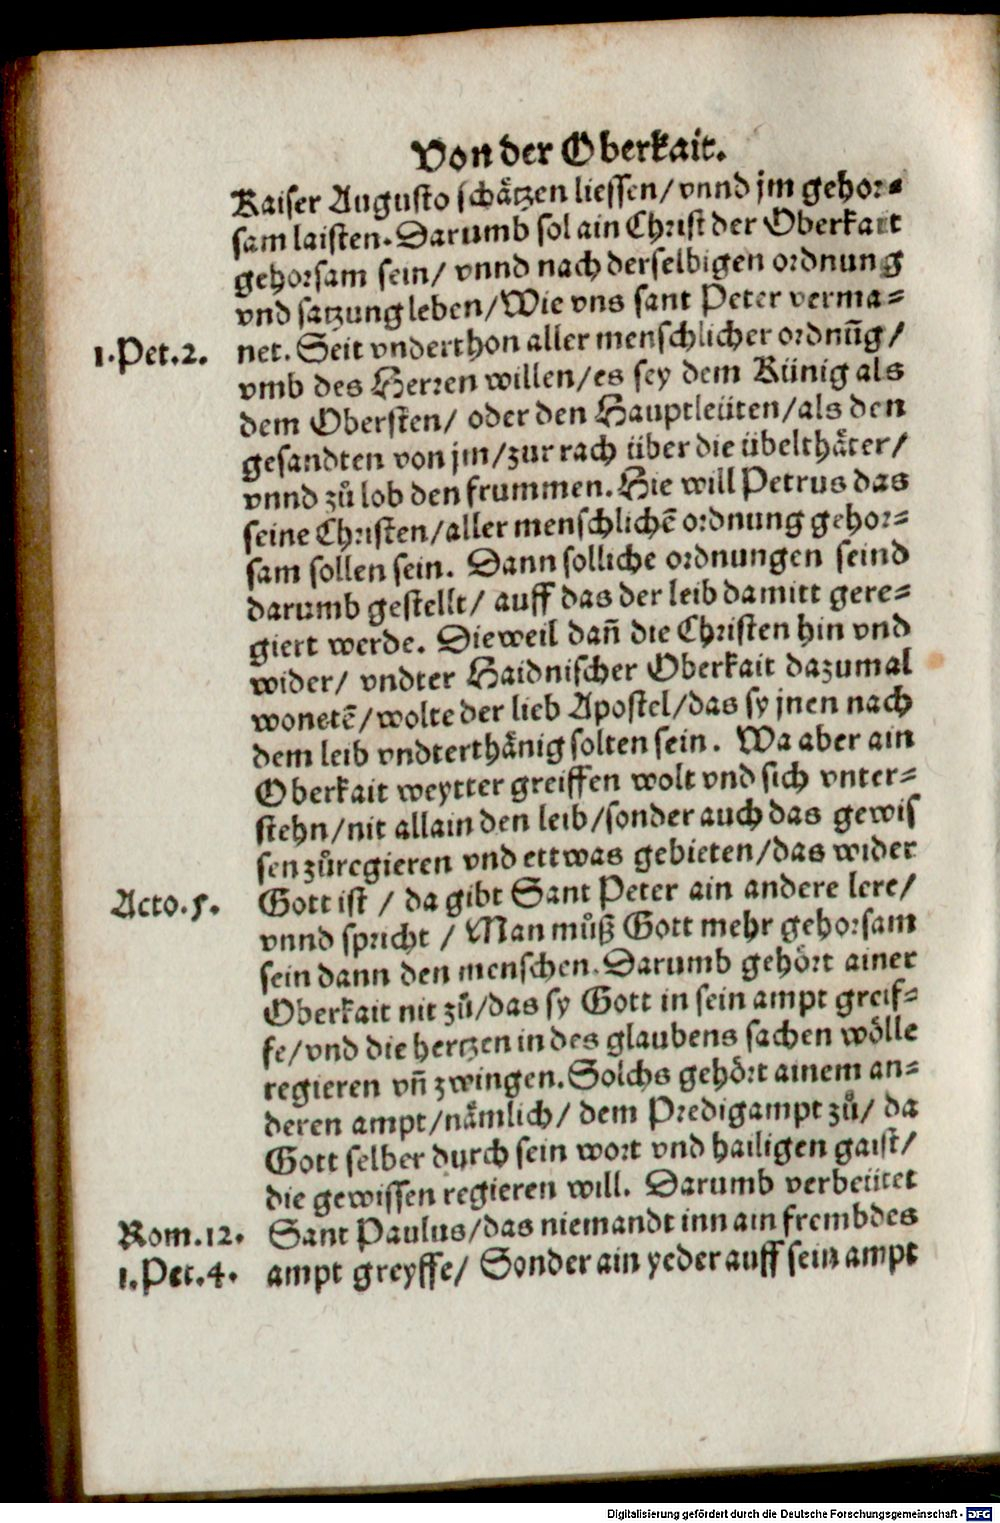 Von der Oberkait.
Kaiser Augusto schätzen liessen/ vnnd jm gehor-
sam laisten. Darumb sol ain Christ der Oberkait
gehorsam sein/ vnnd nach derselbigen ordnung
vnd satzung leben/ Wie vns sant Peter verma-
1. Pet. 2. net. Seit vnderthon aller menschlicher ordnūg/
vmb des Herren willen/ es sey dem Künig als
dem Obersten/ oder den Hauptleüten/ als den
gesandten von jm/ zur rach über die übelthäter/
vnnd zů lob den frummen. Hie will Petrus das
seine Christen/ aller menschlichē ordnung gehor-
sam sollen sein. Dann solliche ordnungen seind
darumb gestellt/ auff das der leib damitt gere-
giert werde. Dieweil dañ die Christen hin vnd
wider/ vndter Haidnischer Oberkait dazumal
wonetē/ wolte der lieb Apostel/ das sy jnen nach
dem leib vndterthänig solten sein. Wa aber ain
Oberkait weytter greiffen wolt vnd sich vnter-
stehn/ nit allain den leib/ sonder auch das gewis
sen zůregieren vnd ettwas gebieten/ das wider
Acto. 5. Gott ist / da gibt Sant Peter ain andere lere/
vnnd spricht / Man můß Gott mehr gehorsam
sein dann den menschen. Darumb gehört ainer
Oberkait nit zů/ das sy Gott in sein ampt greif-
fe/ vnd die hertzen in des glaubens sachen wölle
regieren vñ zwingen. Solchs gehört ainem an-
deren ampt/ nämlich/ dem Predigampt zů/ da
Gott selber durch sein wort vnd hailigen gaist/
die gewissen regieren will. Darumb verbeütet
Rom. 12. Sant Paulus/ das niemandt inn ain frembdes
1. Pet. 4. ampt greyffe/ Sonder ain yeder auff sein ampt
Digitalisierung gefördert durch die Deutsche Forschungsgemeinschaft - DFG